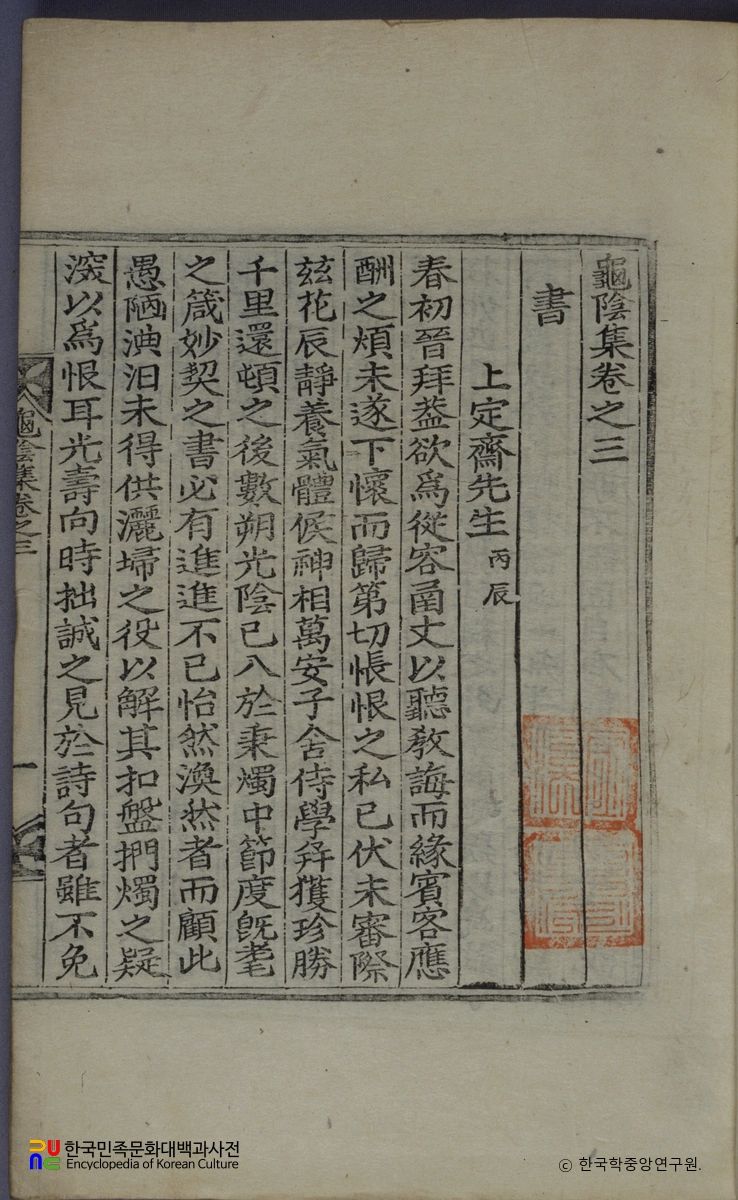 龜陰集卷之三
書
上定齋先生 丙辰
春初晉拜盖欲爲從容函丈以聽敎誨而緣賓客應
酬之煩未遂下懷而歸第切悵恨之私已伏未審際
玆花辰靜養氣體候神相萬安子舍侍學幷獲珍勝
千里還頓之後數朔光陰已八於秉燭中節度旣耄
之箴妙契之書必有進進不已怡然渙然者而顧此
愚陋淟汩未得供灑埽之役以解其扣盤捫燭之疑
深以爲恨耳光壽向時拙誠之見於詩句者雖不免
龜陰集卷之三
一
한국민족문화대백과사전
Encyclopedia of Korean Culture
© 한국학중앙연구원.